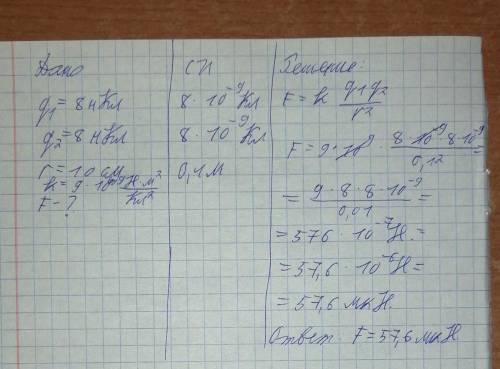 Дано
q1 = 8 нКл
q2 = 8 нКл
r = 10 см
k = 9 · 10⁹ Н·м²/Кл²
F - ?
СИ
8 · 10⁻⁹ Кл
8 · 10⁻⁹ Кл
0,1 м
Решение:
F = k q1q2/r²
F = 9 · 10⁹ · 8 · 10⁻⁹ · 8 · 10⁻⁹/0,1² =
= 9 · 8 · 8 · 10⁻⁹/0,01 =
= 576 · 10⁻⁷ Н =
= 57,6 · 10⁻⁶ Н =
= 57,6 мкН.
Ответ. F = 57,6 мкН